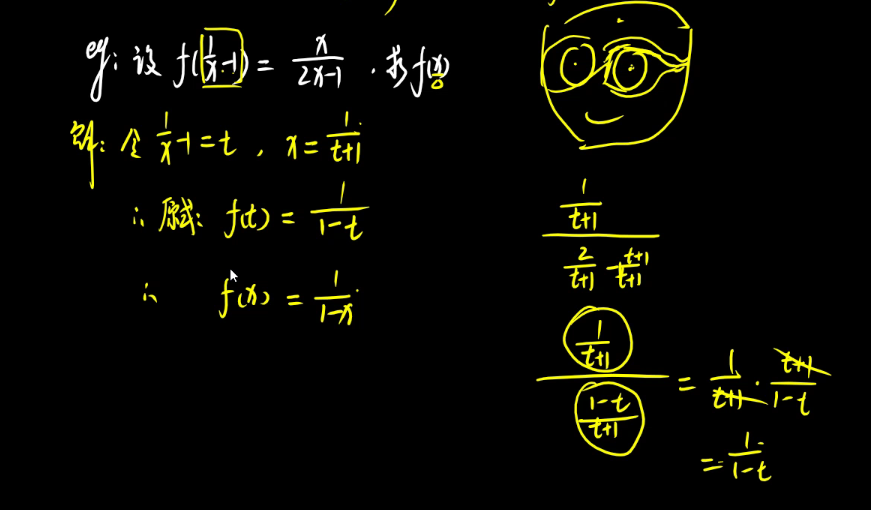 eg: 设 f(1/x-1) = x/(2x-1), 求f(x)
解: 令 1/x-1=t, x=1/(t+1)
∴ 原式: f(t) = 1/(1-t)
∴ f(x) = 1/(1-x)
(1/(t+1))/(2/(t+1) - (t+1)/(t+1))
(1/(t+1))/((1-t)/(t+1)) = 1/(t+1) · (t+1)/(1-t)
= 1/(1-t)